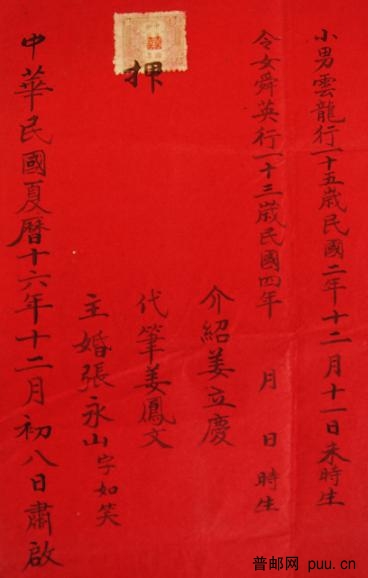 小男雲龍行一十五歲民國二年十二月十一日未時生
令女舜英行一十三歲民國四年 月 日 時生
介紹姜立慶
代筆姜鳳文
主婚張永山字如笑
押
中華民國夏曆十六年十二月初八日肅啟
普邮网 puu.cn